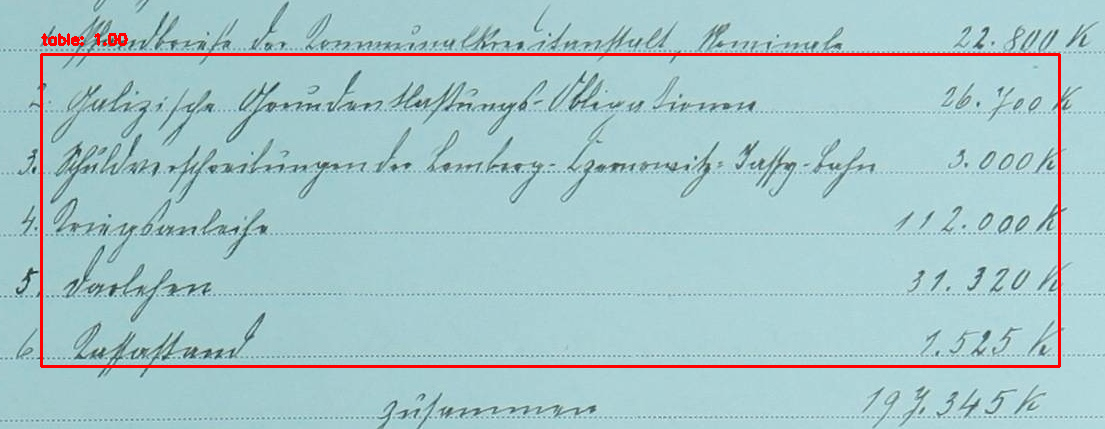 table: 1.00
1. Pfandbriefe der Kommunalkreditanstalt, Nominale 22.800 K
2. Galizische Grundentlastungs-Obligationen 26.700 K
3. Schuldverschreibungen der Lemberg-Czernowitz-Jassy-Bahn 3.000 K
4. Kriegsanleihe 112.000 K
5. Darlehen 31.320 K
6. Kassastand 1.525 K
zusammen 197.345 K